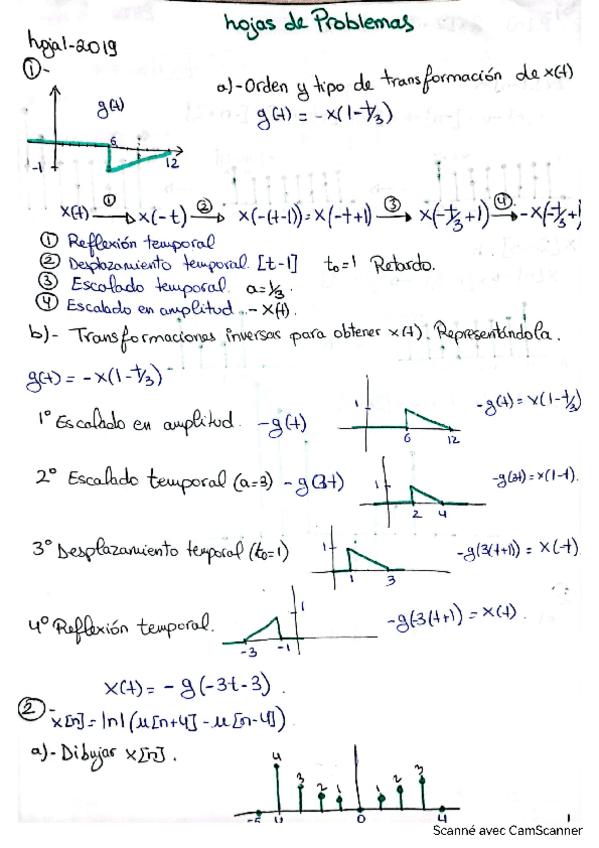 hojas de Problemas
hoja1-2019
①-
a)-Orden y tipo de transformación de x(t)
g(t)
g(t) = -x(1-t/3)
6
-1
12
x(t) ①→ x(-t) ②→ x(-(t-1)) = x(-t+1) ③→ x(-t/3+1) ④→ -x(-t/3+1)
① Reflexión temporal
② Desplazamiento temporal. [t-1] t₀=1 Retardo.
③ Escalado temporal. a=1/3.
④ Escalado en amplitud. - x(t).
b)- Transformaciones inversas para obtener x(t). Representándola.
g(t) = -x(1-t/3)
1º Escalado en amplitud. -g(t)
1
6 12
-g(t) = x(1-t/3)
2º Escalado temporal (a=3) -g(3t)
1
2 4
-g(3t) = x(1-t).
3º Desplazamiento temporal (t₀=1)
1
1 3
-g(3(t+1)) = x(-t)
4º Reflexión temporal.
1
-3 -1
-g(-3(t+1) = x(t).
x(t) = - g(-3t-3).
②-
x[n] = |n| (u[n+4] - u[n-4])
a)- Dibujar x[n].
4 3 2 1 1 2 3
0 4
Scanné avec CamScanner